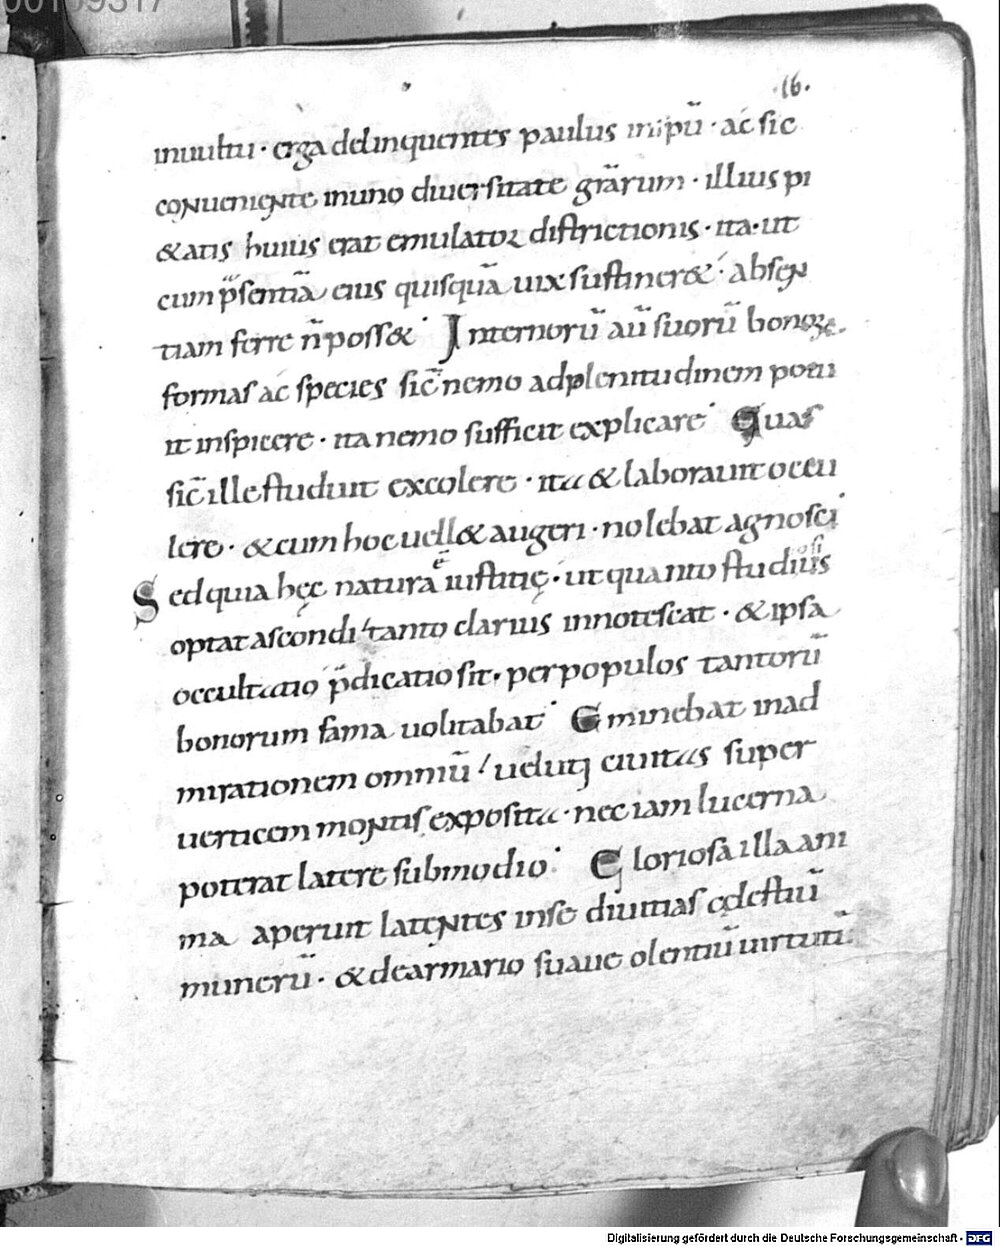 00109317
.16.
inuultu · erga delinquentes paulus inipū · ac sic
conueniente in uno diuersitate grãrum · illius pi
&atis huius erat emulator districtionis · ita · ut
cum p̃sentiã eius quisquã uix sustiner& · absen
tiam ferre ñ poss& · Internorũ aũ suorũ bonoꝝ.
formas ac species sic̃ nemo ad plenitudinem potu
it inspicere · ita nemo sufficit explicare · Quas
sic̃ ille studuit excolere · ita & laborauit occu
lere · & cum hoc uell& augeri · nolebat agnosci
Sed quia hęc natura ẽ iustitię · ut quanto studius
osi
optat ascondi / tanto clarius innotescat · & ipsa
occultatio p̃dicatio sit · per populos tantorũ
bonorum fama uolitabat · Eminebat in ad
mirationem omniũ / uelutꝫ ciuitas super
uerticem montis exposita · nec iam lucerna
poterat latere sub modio · Gloriosa illa ani
ma aperuit latentes in se diuitias cęlestiũ
munerũ · & de armario suaue olentiũ uirtutũ
Digitalisierung gefördert durch die Deutsche Forschungsgemeinschaft - DFG